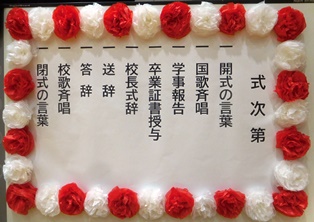 式次第
一 開式の言葉
一 国歌斉唱
一 学事報告
一 卒業証書授与
一 校長式辞
一 送辞
一 答辞
一 校歌斉唱
一 閉式の言葉